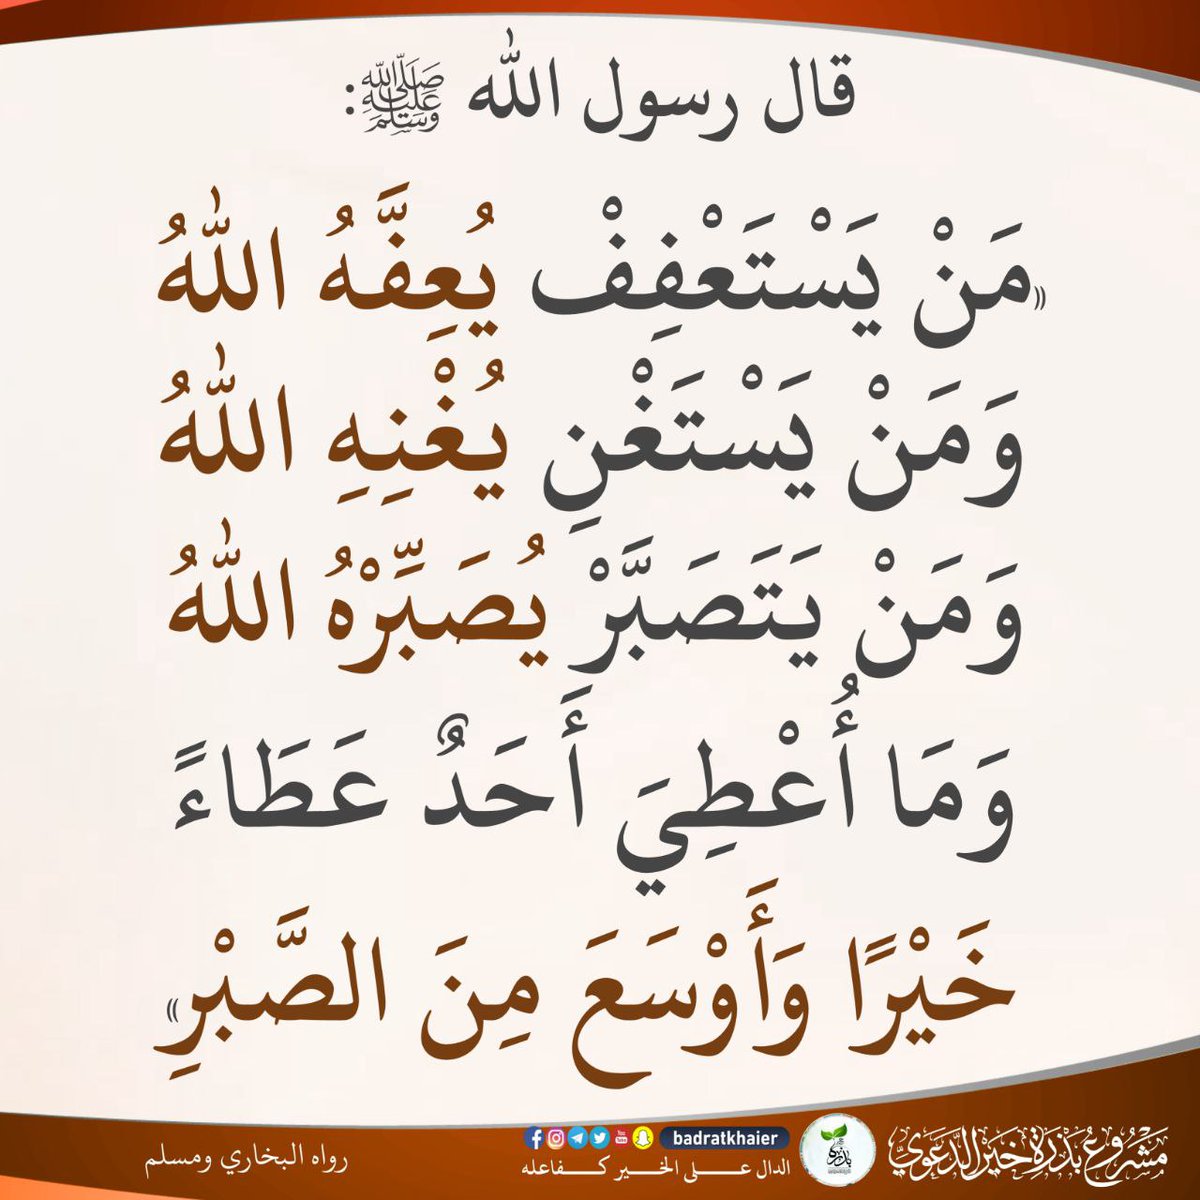 قال رسول الله ﷺ:
«مَنْ يَسْتَعْفِفْ يُعِفَّهُ اللهُ
وَمَنْ يَسْتَغْنِ يُغْنِهِ اللهُ
وَمَنْ يَتَصَبَّرْ يُصَبِّرْهُ اللهُ
وَمَا أُعْطِيَ أَحَدٌ عَطَاءً
خَيْرًا وَأَوْسَعَ مِنَ الصَّبْرِ»
مَشْرُوعُ بَذْرَةِ خَيْرٍ الدَّعَوِيّ
بذرة
badratkhaier
الدال على الخير كفاعله
رواه البخاري ومسلم